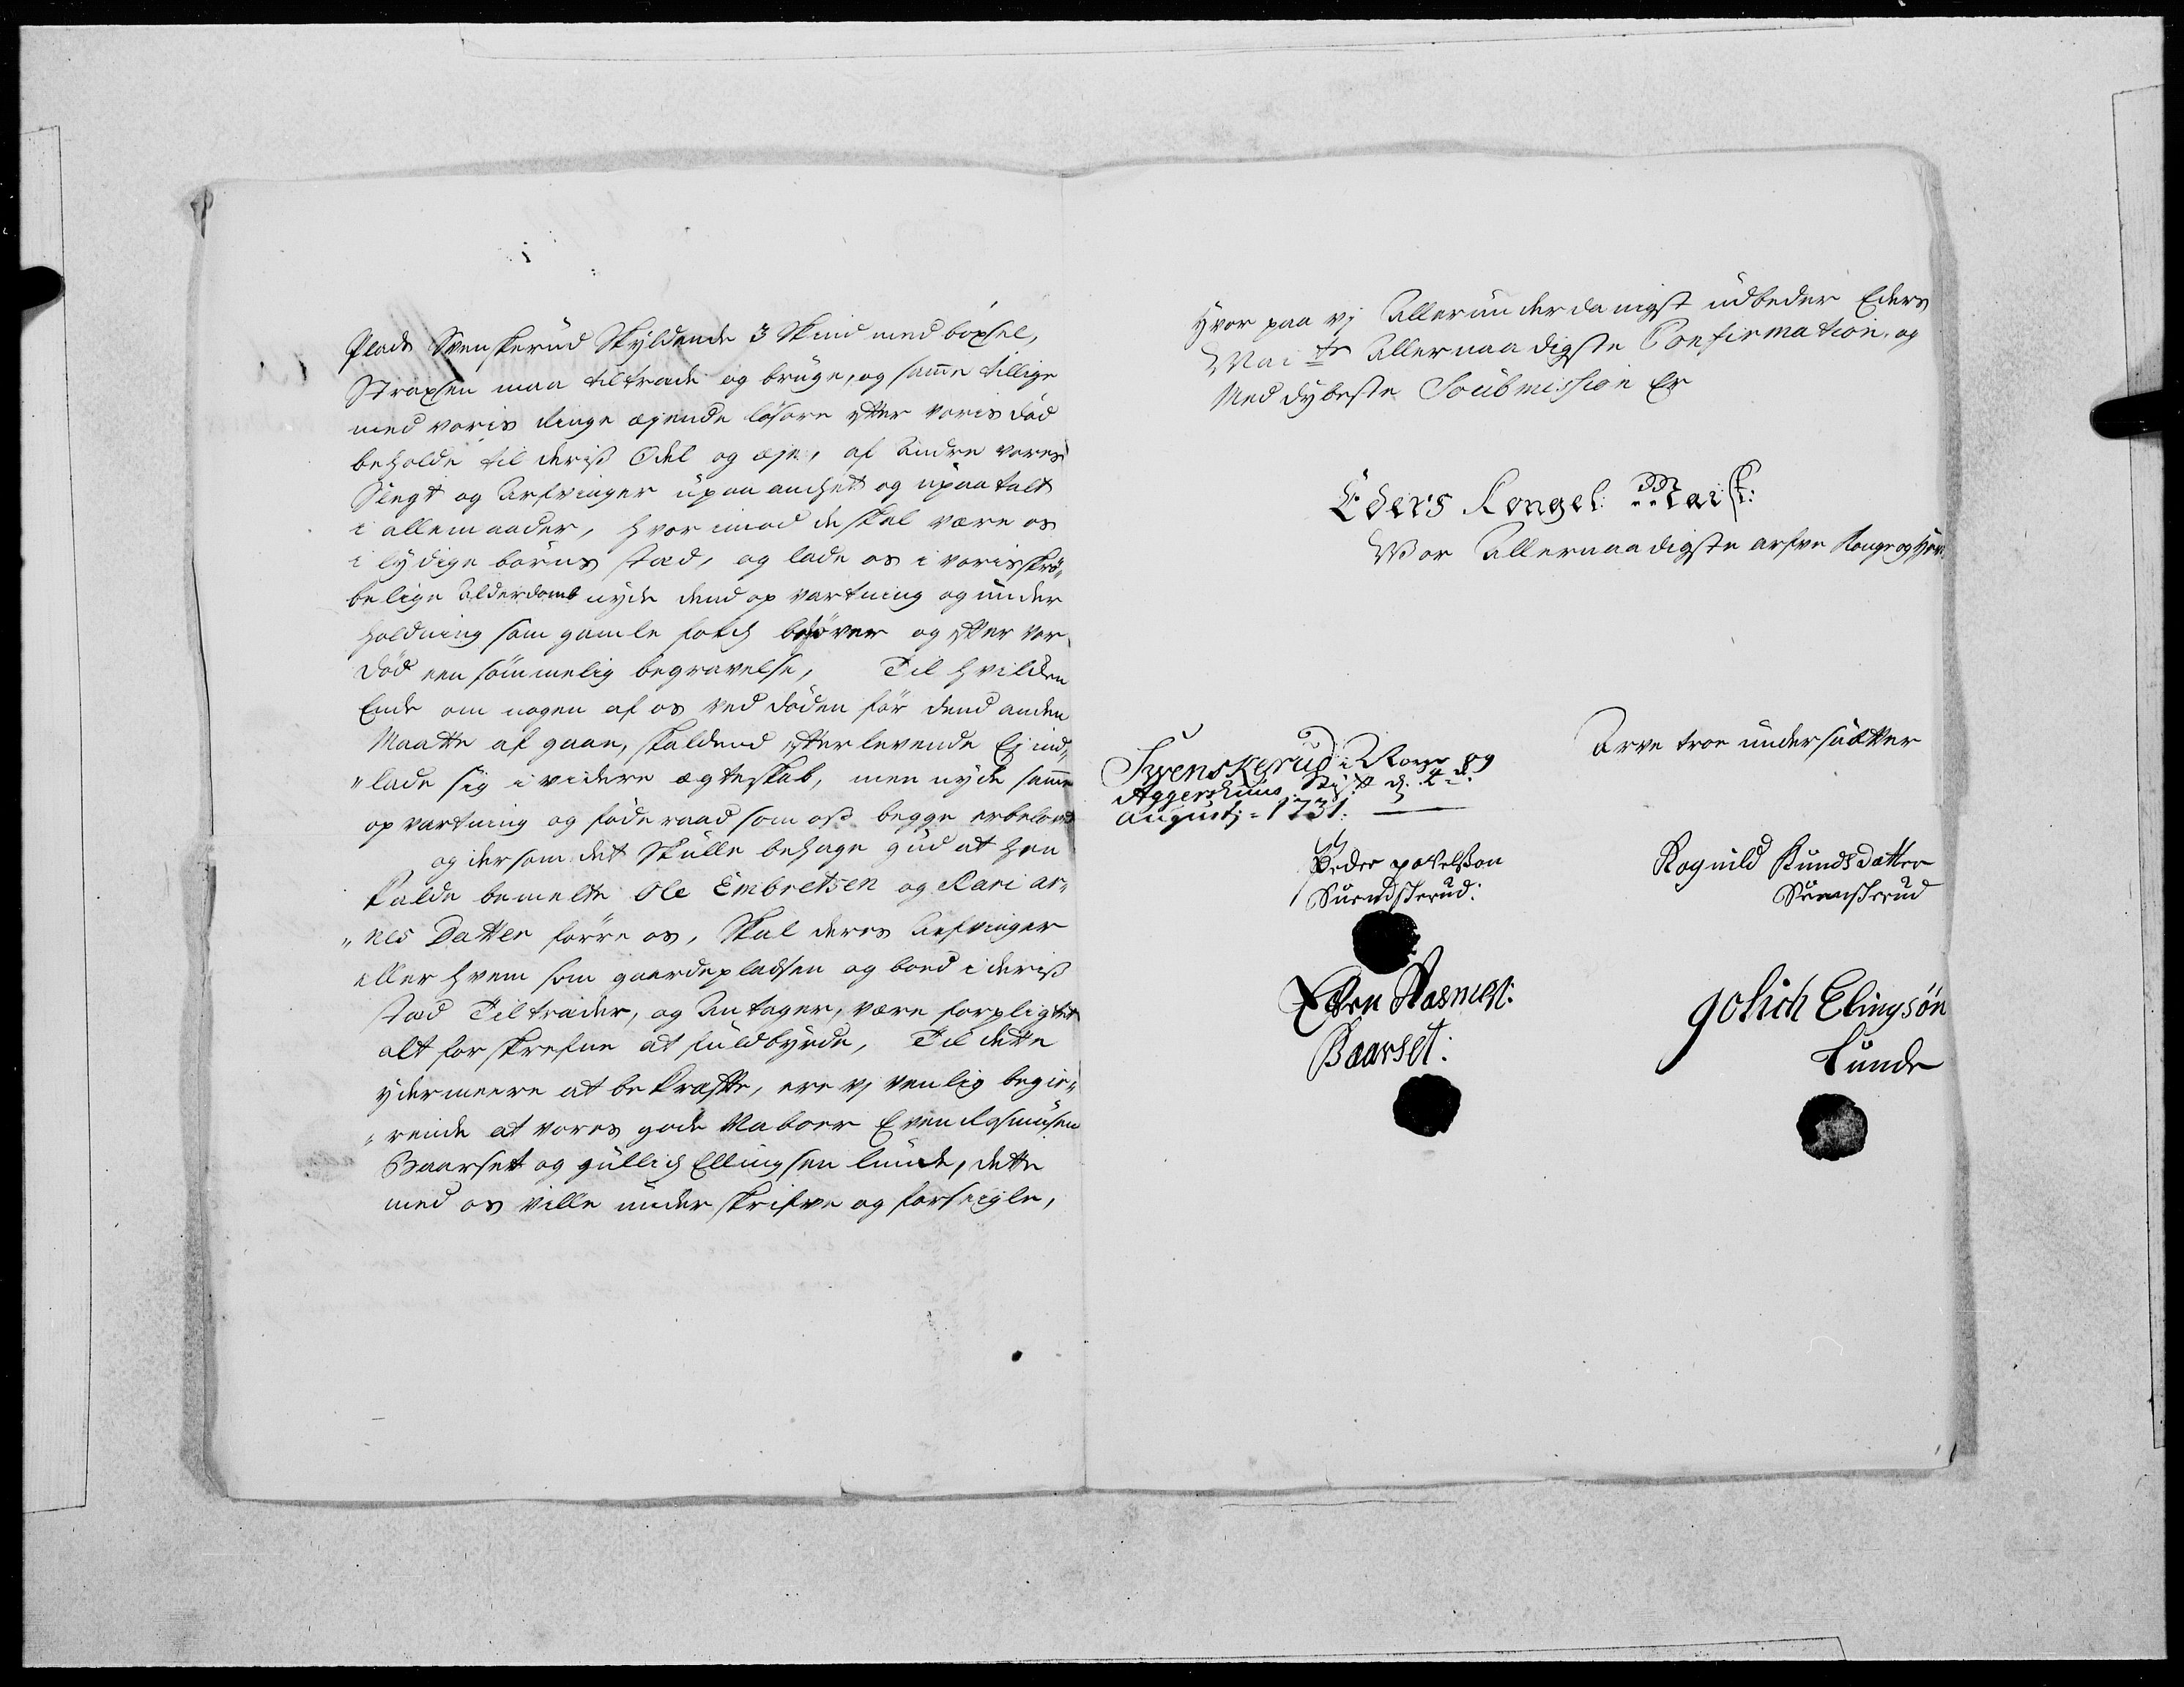 Plads Svenskerud Skyldende 3 Skind med böxsel,
Straxsen maa tiltrade og bruge, og samme tillige
med voris ringe ejende lösöre efter voris död
beholde til deriss Odel og eje, af Andre vores
Slegt og Arfvinger upaa anchet og upaatalt
i allemaader, hvorimod de skal være os
i lydige börns stad, og lade os i voris skrö„
belige Alderdomb nyde dend opvartning og under
holdning som gamle folch behöver og efter vor
död een sömmelig begravelse, Til hvilken
Ende om nogen af os ved döden för dend anden
Maatte af gaae, skal dend efterlevende Ej ind„
„lade sig i videre ægteskab, men nyde samme
opvartning og föderaad som oss begge er belovet
og dersom det Skulle behage gud at hen
kalde bemelte Ole Embretsen og Kari ar„
„nes Datter förre os, Skal deres Arfvinger
eller hvem som gaardepladsen og boed i deriss
stad Tiltræder, og Antager, være forpligtet
alt forskrefne at fuldbyrde, Til dette
ydermeere at bekræfte, ere vj venlig begie„
„rende at vores gode Naboer Even Rasmusen
Baarset og gullich Ellingsen lunde, dette
med os ville underskrifve og forseigle,
Hvor paa vj Allerunderdanigst udbeder Eders
Maits Allernaadigste Confirmation, og
Med dybeste Soubmission Er
Eders Kongel: Maist:
Vor Allernaadigste arfve Konge og Herre
Arve troe undersaatter
Svenskerud i Norge og
Aggershuus Stift d. 4de
Augustj = 1731.
Peder povelsson
Suendskerud:
Rognild Knudsdatter
Suenskerud
Even Rasmus:
Baarset:
golich Elingsön
Lunde